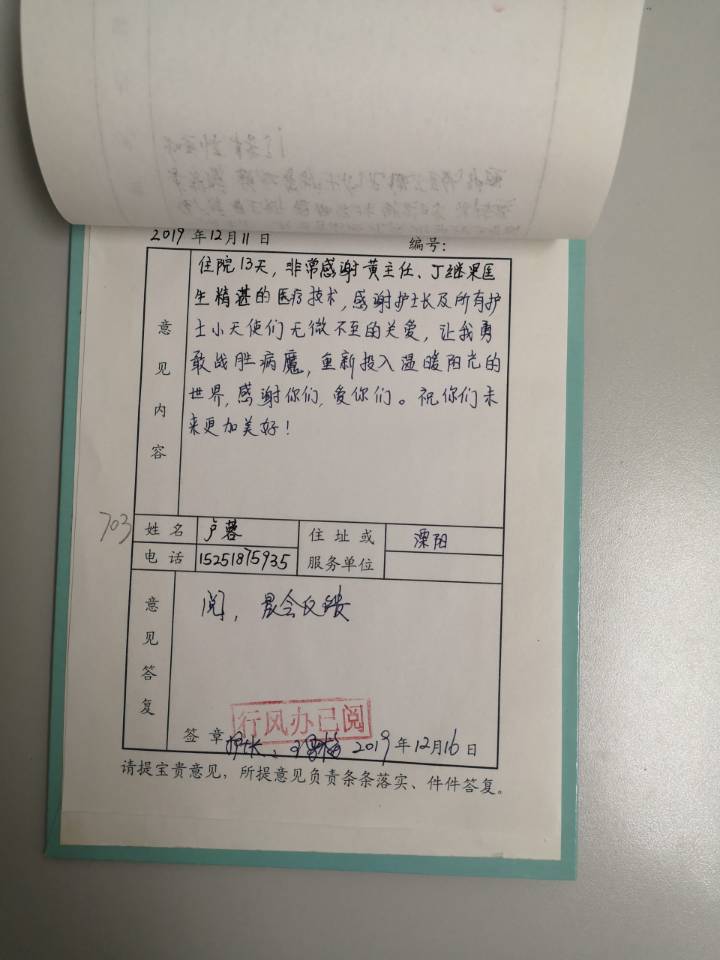 2019年12月11日 编号:
意见内容
住院13天,非常感谢黄主任、丁继果医
生精甚的医疗技术,感谢护士长及所有护
士小天使们无微不至的关爱,让我勇
敢战胜病魔,重新投入温暖阳光的
世界,感谢你们,爱你们。祝你们未
来更加美好!
703
姓名 卢蓉 住址或服务单位 溧阳
电话 15251875935
意见答复
阅,晨会反馈
行风办已阅
签章 护长: 2019年12月16日
请提宝贵意见,所提意见负责条条落实、件件答复。